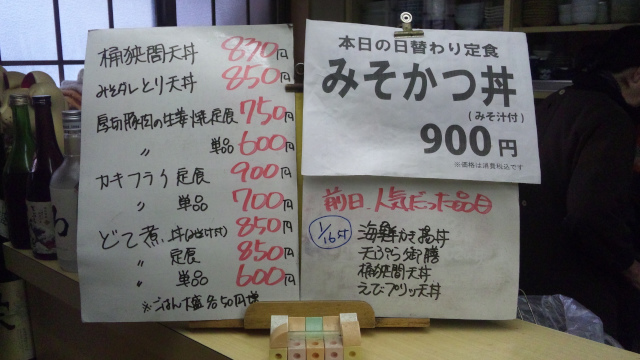 桶狭間天丼 830円
みそタレとり天丼 850円
厚切豚肉の生姜焼定食 750円
〃 単品 600円
カキフライ定食 900円
〃 単品 700円
どて煮丼(みそ汁付) 850円
〃 定食 850円
〃 単品 600円
※ごはん大盛各50円増
本日の日替わり定食
みそかつ丼
(みそ汁付)
900円
※価格は消費税込です
前日、人気だった品目
1/16は
海鮮かき揚丼
天ぷら御膳
桶狭間天丼
えびプリッ天丼